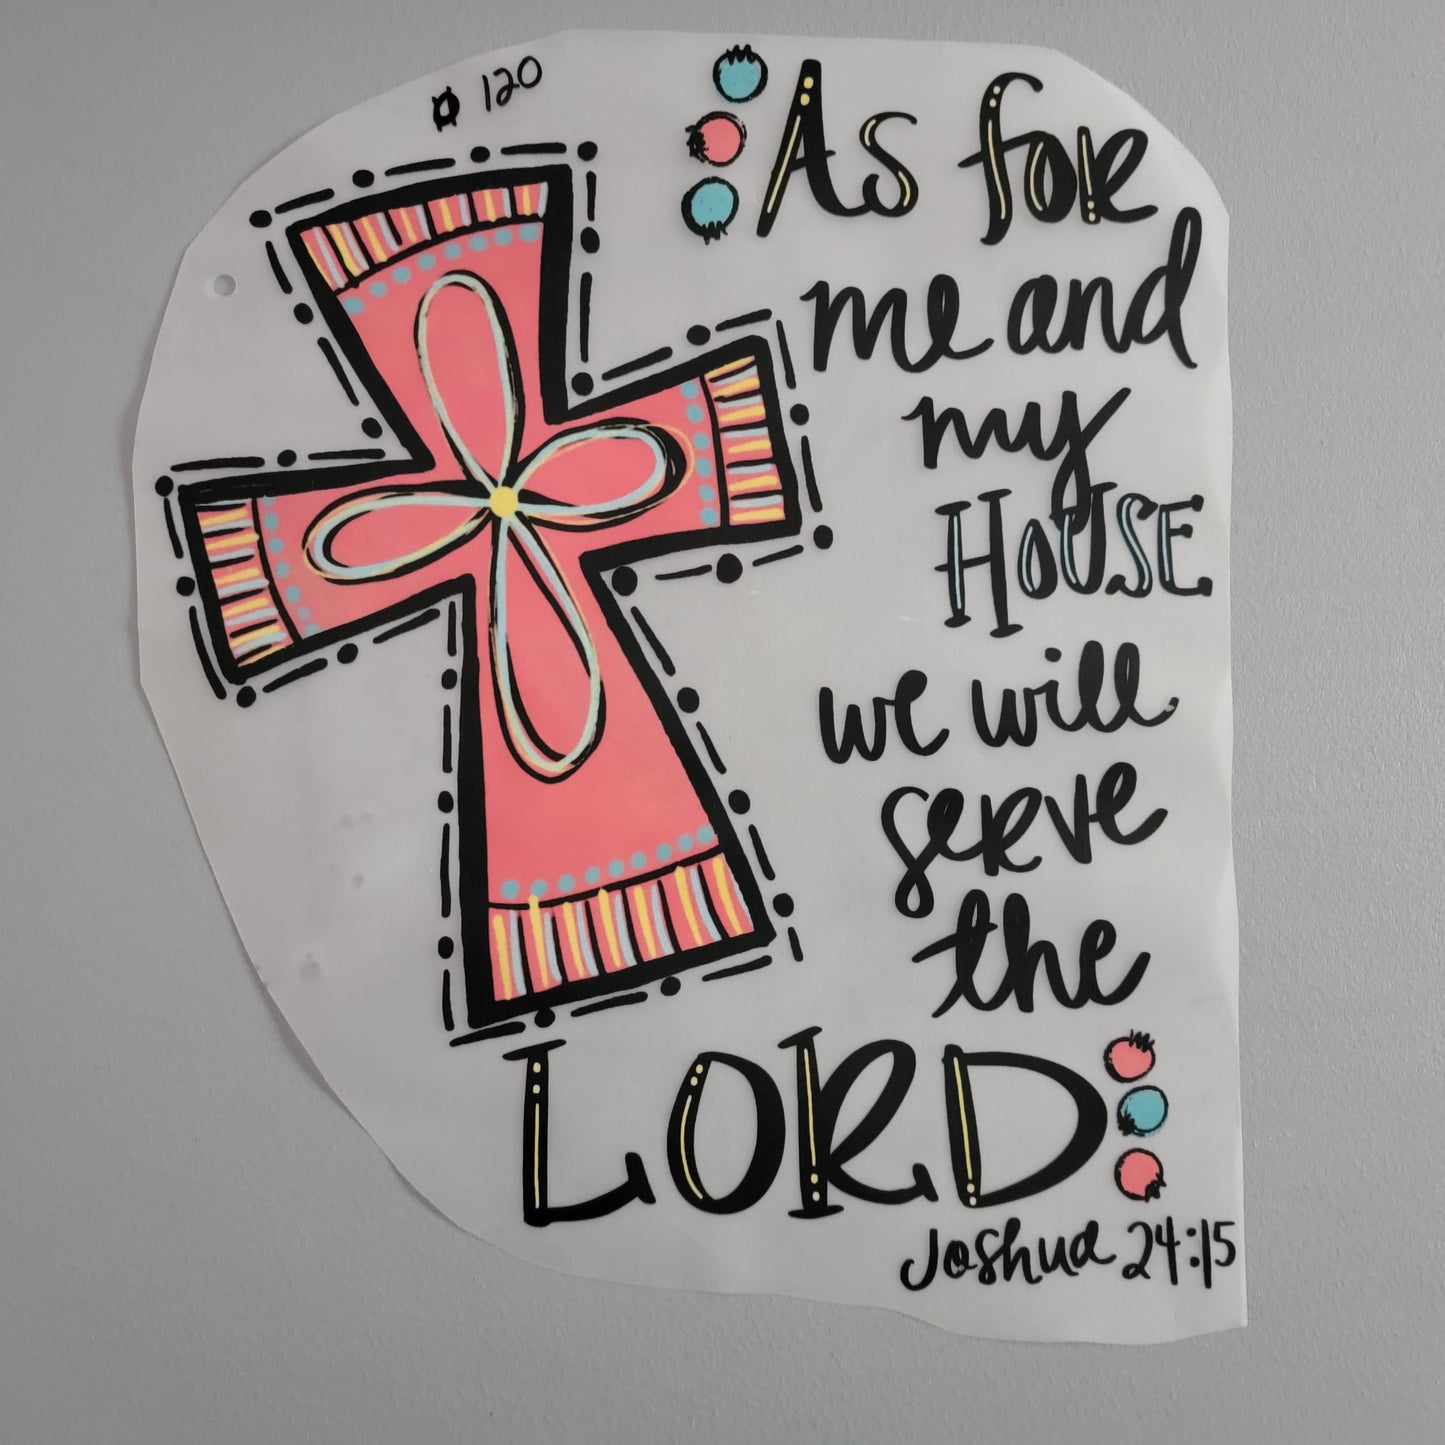 120
As for
me and
my
House
we will
serve
the
LORD
Joshua 24:15